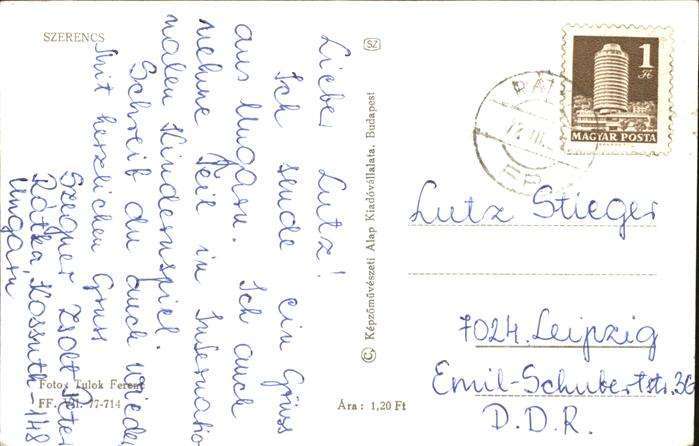 SZERENCS
Lieber Lutz!
Ich sende ein Grüss
aus Ungarn. Ich auch
nehme Teil in Internatio
nalen Kindernspiel.
Schreib du auch wieder
Mit herzlichen Grüss
Szegner Zsolt Péter
Rátka, Kossuth 148
Ungarn
Foto: Tulok Ferenc
FF. VII. 77-714
SZ
© Képzőművészeti Alap Kiadóvállalata, Budapest
Ára: 1,20 Ft
1
Ft
MAGYAR POSTA
Lutz Stieger
7024. Leipzig
Emil-Schubertstr. 36
D.D.R.